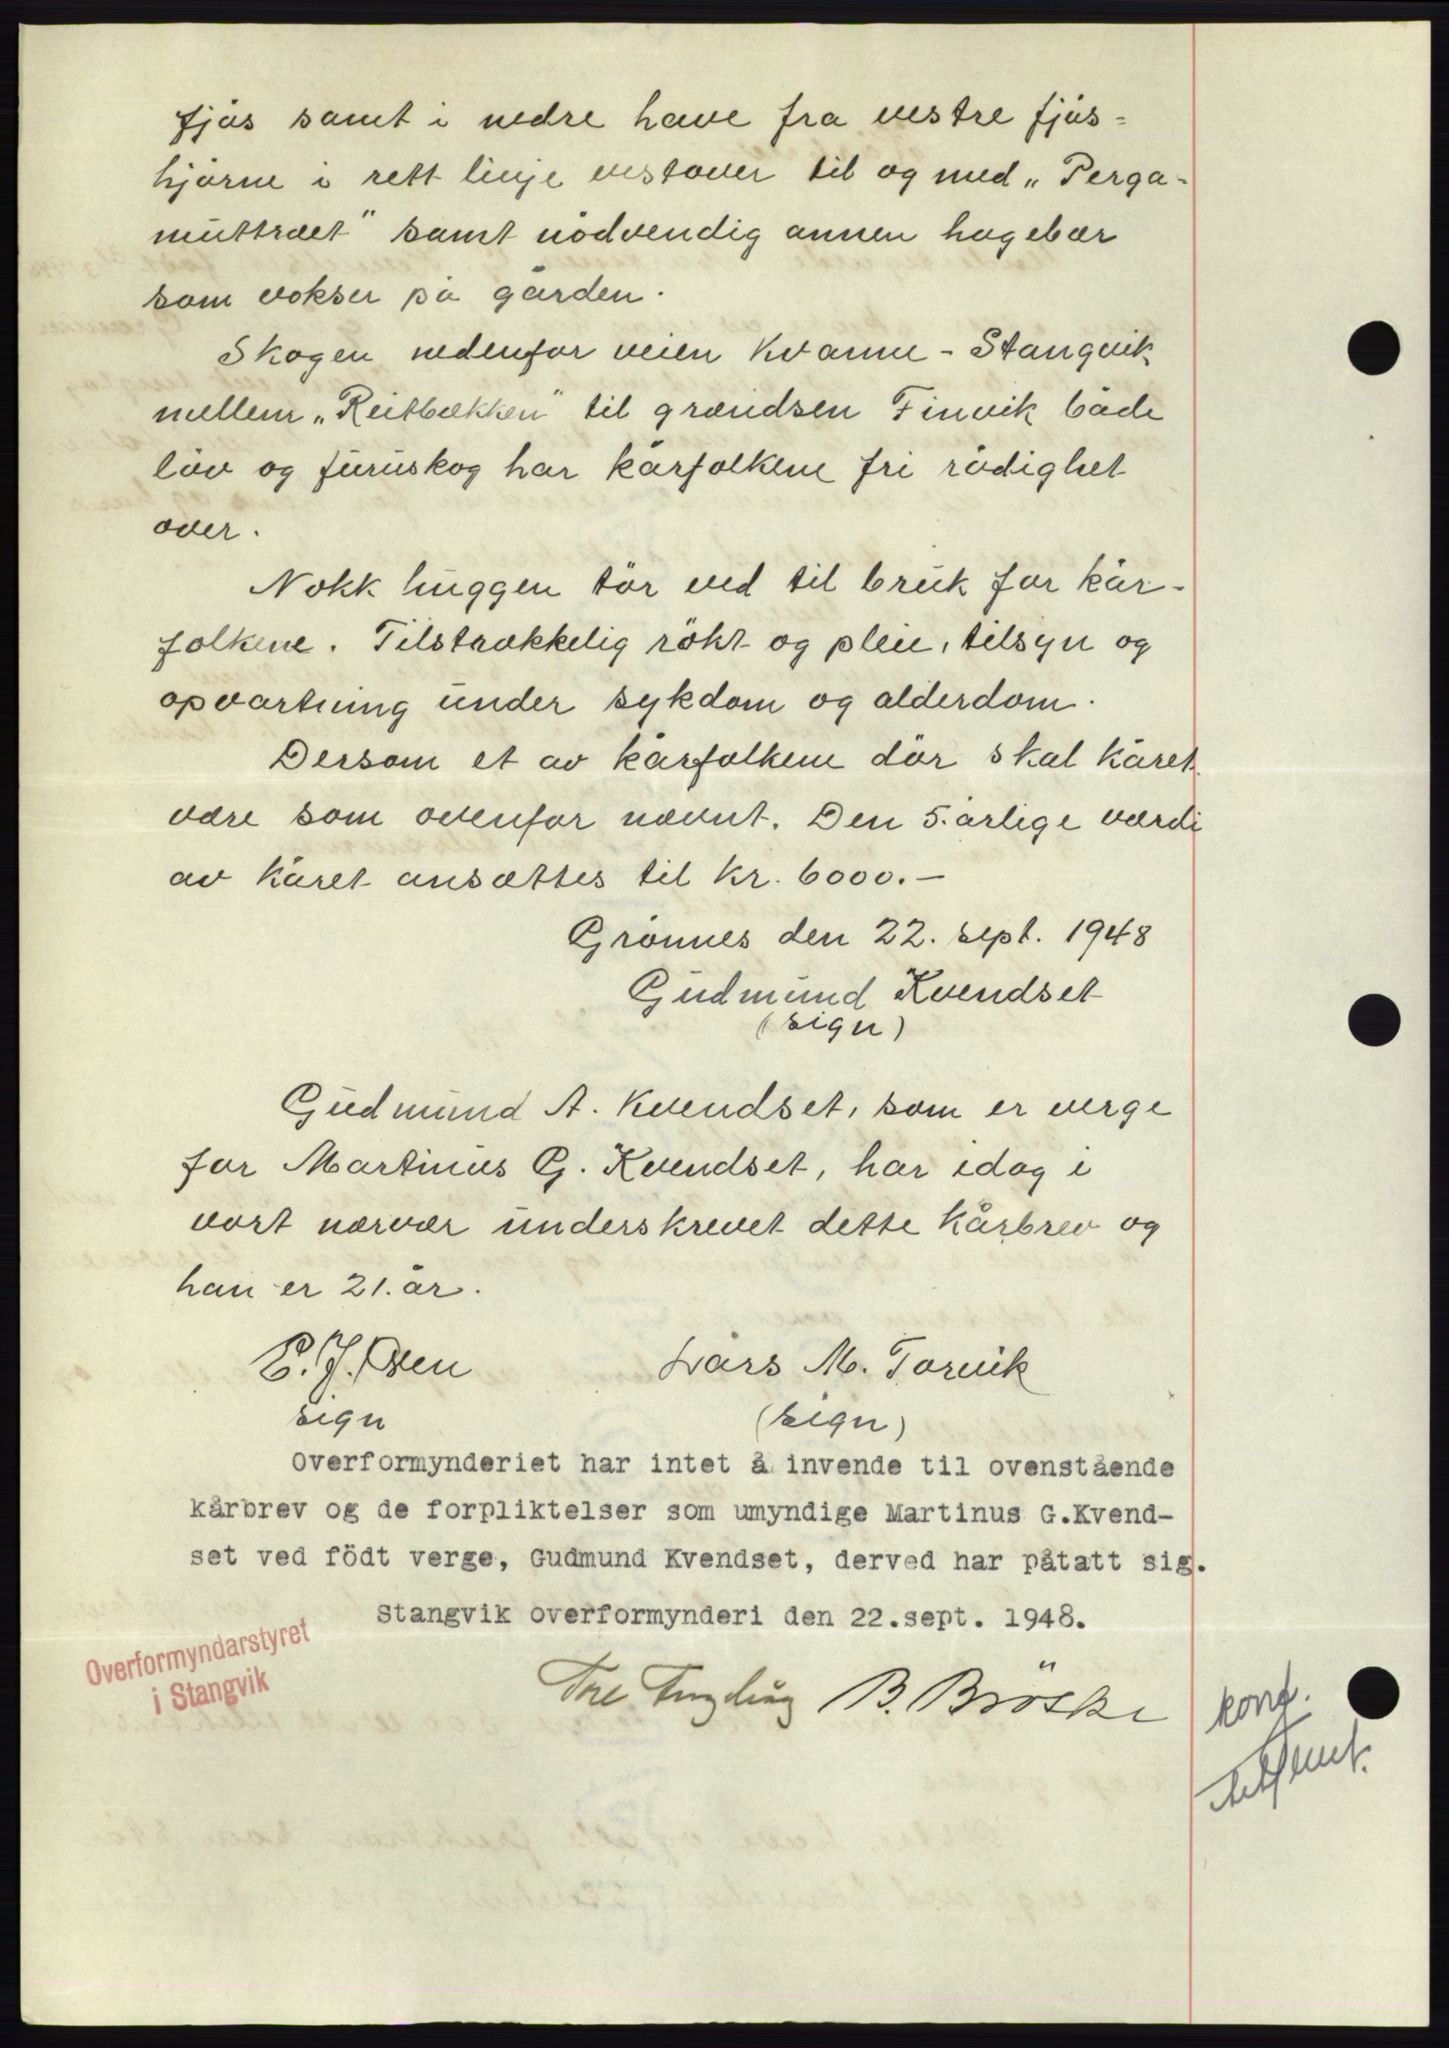 fjös samt i nedre have fra vestre fjös=
hjörne i rett linje vestover til og med „Perga-
muttræet" samt nödvendig annen hagebær
som vokser på gården.
Skogen nedenfor veien Kvanne - Stangvik
mellem „Reitbækken" til grændsen Finvik både
löv og furuskog har kårfolkene fri rådighet
over.
Nokk huggen tör ved til bruk for kår-
folkene. Tilstrækkelig rökt og pleie, tilsyn og
opvartning under sykdom og alderdom.
Dersom et av kårfolkene dör skal kåret
være som ovenfor nævnt. Den 5.årlige værdi
av kåret ansættes til kr. 6000.—
Grönnes den 22. sept. 1948
Gudmund Kvendset
(sign)
Gudmund A. Kvendset, som er verge
for Martinus G. Kvendset, har idag i
vort nærvær underskrevet dette kårbrev og
han er 21. år.
E. J. Osen Lars M. Torvik
sign (sign)
Overformynderiet har intet å invende til ovenstående
kårbrev og de forpliktelser som umyndige Martinus G.Kvend-
set ved födt verge, Gudmund Kvendset, derved har påtatt sig.
Stangvik overformynderi den 22.sept. 1948.
Overformyndarstyret
i Stangvik
Tre B. Bröske
konf.